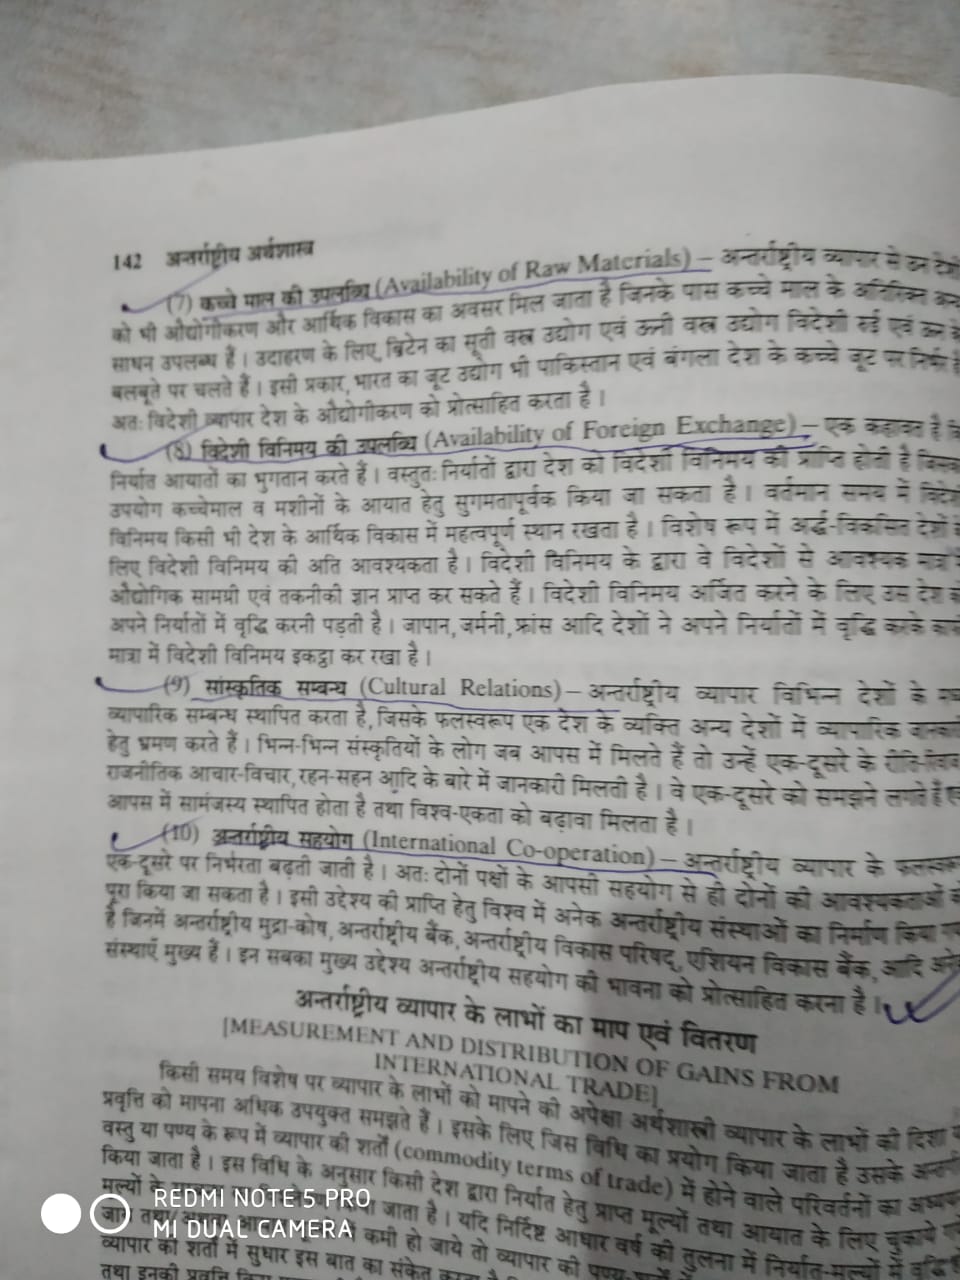 142 अन्तर्राष्ट्रीय अर्थशास्त्र
(7) कच्चे माल की उपलब्धि (Availability of Raw Materials) – अन्तर्राष्ट्रीय व्यापार से उन देशों
को भी औद्योगीकरण और आर्थिक विकास का अवसर मिल जाता है जिनके पास कच्चे माल के अतिरिक्त अन्य
साधन उपलब्ध हैं। उदाहरण के लिए, ब्रिटेन का सूती वस्त्र उद्योग एवं ऊनी वस्त्र उद्योग विदेशी रुई एवं ऊन के
बलबूते पर चलते हैं। इसी प्रकार, भारत का जूट उद्योग भी पाकिस्तान एवं बंगला देश के कच्चे जूट पर निर्भर है
अतः विदेशी व्यापार देश के औद्योगीकरण को प्रोत्साहित करता है।
(8) विदेशी विनिमय की उपलब्धि (Availability of Foreign Exchange) – एक कहावत है कि
निर्यात आयातों का भुगतान करते हैं। वस्तुतः निर्यातों द्वारा देश को विदेशी विनिमय की प्राप्ति होती है जिसका
उपयोग कच्चेमाल व मशीनों के आयात हेतु सुगमतापूर्वक किया जा सकता है। वर्तमान समय में विदेशी
विनिमय किसी भी देश के आर्थिक विकास में महत्वपूर्ण स्थान रखता है। विशेष रूप में अर्द्ध-विकसित देशों के
लिए विदेशी विनिमय की अति आवश्यकता है। विदेशी विनिमय के द्वारा वे विदेशों से आवश्यक मात्रा में
औद्योगिक सामग्री एवं तकनीकी ज्ञान प्राप्त कर सकते हैं। विदेशी विनिमय अर्जित करने के लिए उस देश को
अपने निर्यातों में वृद्धि करनी पड़ती है। जापान, जर्मनी, फ्रांस आदि देशों ने अपने निर्यातों में वृद्धि करके काफी
मात्रा में विदेशी विनिमय इकट्ठा कर रखा है।
(9) सांस्कृतिक सम्बन्ध (Cultural Relations) – अन्तर्राष्ट्रीय व्यापार विभिन्न देशों के मध्य
व्यापारिक सम्बन्ध स्थापित करता है, जिसके फलस्वरूप एक देश के व्यक्ति अन्य देशों में व्यापारिक जानकारी
हेतु भ्रमण करते हैं। भिन्न-भिन्न संस्कृतियों के लोग जब आपस में मिलते हैं तो उन्हें एक-दूसरे के रीति-रिवाज
राजनीतिक आचार-विचार, रहन-सहन आदि के बारे में जानकारी मिलती है। वे एक-दूसरे को समझने लगते हैं
आपस में सामंजस्य स्थापित होता है तथा विश्व-एकता को बढ़ावा मिलता है।
(10) अन्तर्राष्ट्रीय सहयोग (International Co-operation) – अन्तर्राष्ट्रीय व्यापार के फलस्वरूप
एक-दूसरे पर निर्भरता बढ़ती जाती है। अतः दोनों पक्षों के आपसी सहयोग से ही दोनों की आवश्यकताओं को
पूरा किया जा सकता है। इसी उद्देश्य की प्राप्ति हेतु विश्व में अनेक अन्तर्राष्ट्रीय संस्थाओं का निर्माण किया गया
है जिनमें अन्तर्राष्ट्रीय मुद्रा-कोष, अन्तर्राष्ट्रीय बैंक, अन्तर्राष्ट्रीय विकास परिषद्, एशियन विकास बैंक, आदि अनेक
संस्थाएँ मुख्य हैं। इन सबका मुख्य उद्देश्य अन्तर्राष्ट्रीय सहयोग की भावना को प्रोत्साहित करना है।
अन्तर्राष्ट्रीय व्यापार के लाभों का माप एवं वितरण
[MEASUREMENT AND DISTRIBUTION OF GAINS FROM
INTERNATIONAL TRADE]
किसी समय विशेष पर व्यापार के लाभों को मापने की अपेक्षा अर्थशास्त्री व्यापार के लाभों की दिशा
प्रवृत्ति को मापना अधिक उपयुक्त समझते हैं। इसके लिए जिस विधि का प्रयोग किया जाता है उसके अन्तर्गत
वस्तु या पण्य के रूप में व्यापार की शर्तों (commodity terms of trade) में होने वाले परिवर्तनों का अध्ययन
किया जाता है। इस विधि के अनुसार किसी देश द्वारा निर्यात हेतु प्राप्त मूल्यों तथा आयात के लिए चुकाये गये
मूल्यों के जाता है। यदि निर्दिष्ट आधार वर्ष की तुलना में निर्यात-मूल्यों में वृद्धि
जाये तथा कमी हो जाये तो व्यापार की
व्यापार की शर्तों में सुधार इस बात का संकेत करता है
तथा इनकी प्रवृत्ति
REDMI NOTE 5 PRO
MI DUAL CAMERA